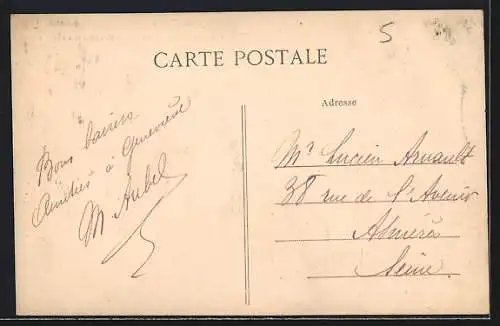 5
CARTE POSTALE
Adresse
Bons baisers
Amitiés à Geneviève
M Aubel
Mr Lucien Arnault
38 rue de l'Avenir
Asnières
Seine